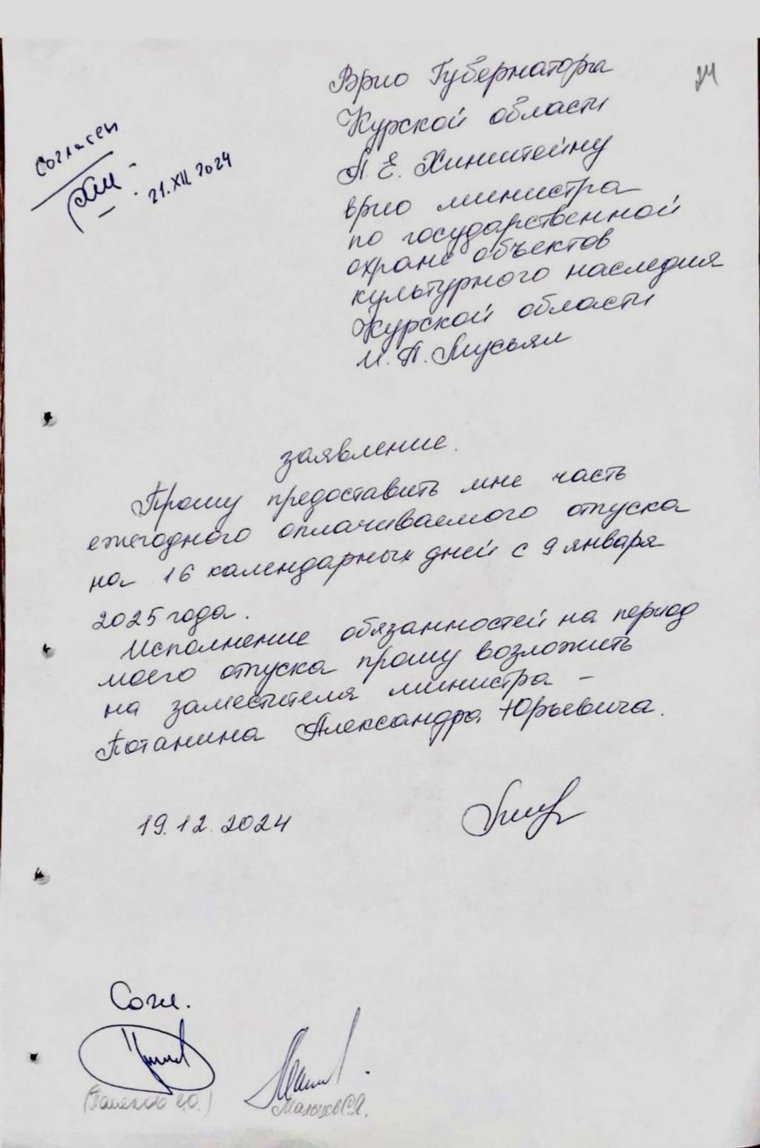 24
Врио Губернатора
Курской области
А. Е. Хинштейну
врио министра
по государственной
охране объектов
культурного наследия
Курской области
И. А. Мусьял
Согласен
21.XII 2024
заявление.
Прошу предоставить мне часть
ежегодного оплачиваемого отпуска
на 16 календарных дней с 9 января
2025 года.
Исполнение обязанностей на период
моего отпуска прошу возложить
на заместителя министра –
Потанина Александра Юрьевича.
19.12.2024
Согл.